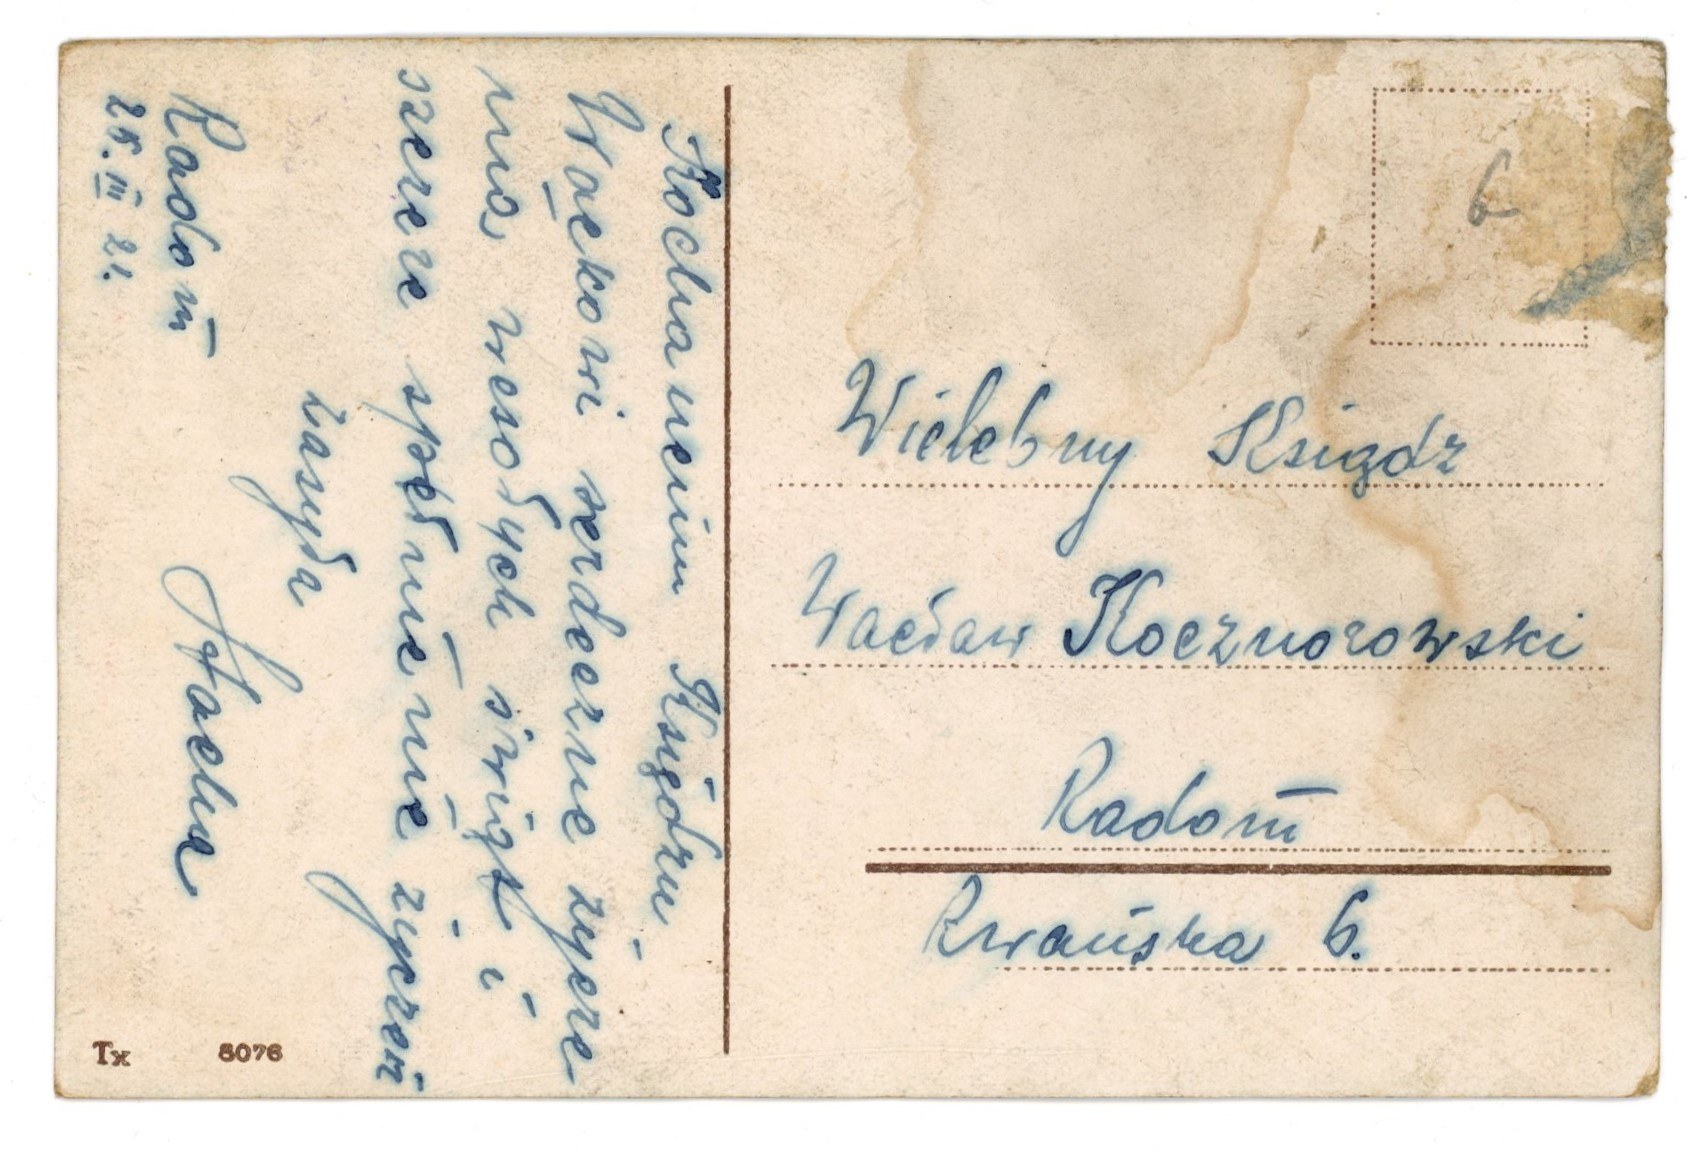 Kochanemu Księdzu
Wackowi serdeczne życze-
nia, wesołych świąt i
szczere spełnienie życzeń
zasyła
Stacha
Radom
25. III 21.
Wielebny Ksiądz
Wacław Kocznorowski
Radom
Rwańska 6.
6
Tx 5076